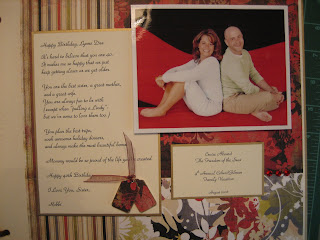 Happy Birthday, Lynne Dee
It's hard to believe that you are 40.
It makes me so happy that we just
keep getting closer as we get older.
You are the best mom, a great mother,
and a great wife.
You are always fun to be with
(except when "pulling a Lindy"
but we've come to love them too.)
You plan the best trips,
cook awesome holiday dinners,
and always make the most beautiful
Mommy would be so proud of the life you've created.
Happy 40th Birthday
I Love You, Sister,
Nikki
The President of the
4th Annual
Family Vacation
August